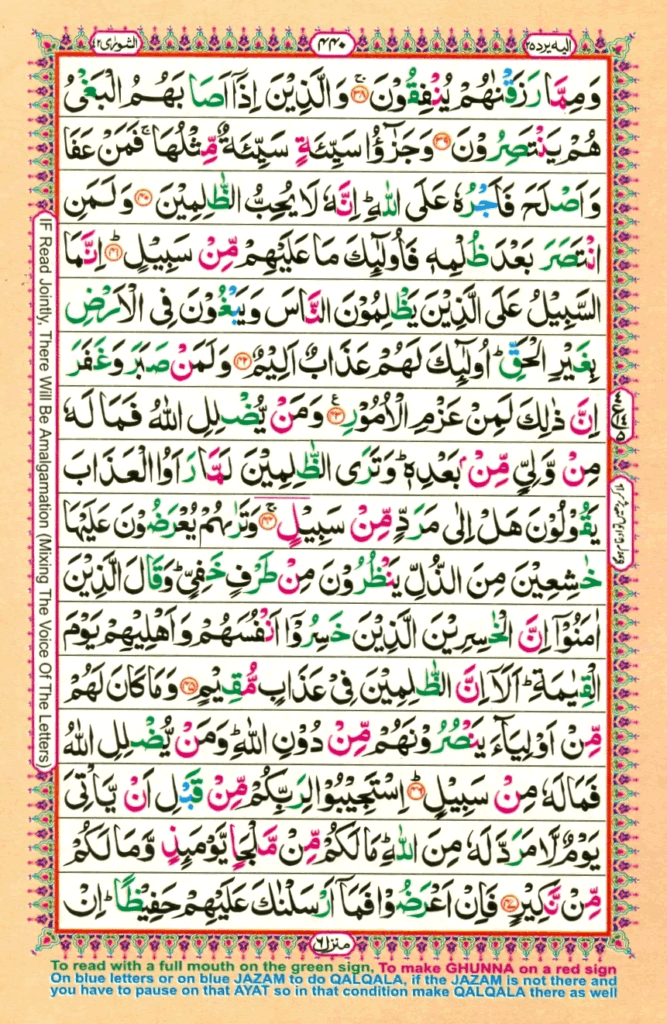 الشورٰى ٤٢
٤٤٠
اليه يرد ٢٥
وَمِمَّا رَزَقْنٰهُمْ يُنْفِقُوْنَ ۚ‏﴿۳۸﴾ وَالَّذِيْنَ اِذَاۤ اَصَابَهُمُ الْبَغْىُ
هُمْ يَنْتَصِرُوْنَ ﴿۳۹﴾ وَجَزٰٓؤُا سَيِّئَةٍ سَيِّئَةٌ مِّثْلُهَا ۚ فَمَنْ عَفَا
وَاَصْلَحَ فَاَجْرُهٗ عَلَى اللّٰهِ ؕ اِنَّهٗ لَا يُحِبُّ الظّٰلِمِيْنَ ﴿۴۰﴾ وَلَمَنِ
انْتَصَرَ بَعْدَ ظُلْمِهٖ فَاُولٰٓئِكَ مَا عَلَيْهِمْ مِّنْ سَبِيْلٍ ؕ ﴿۴۱﴾ اِنَّمَا
السَّبِيْلُ عَلَى الَّذِيْنَ يَظْلِمُوْنَ النَّاسَ وَيَبْغُوْنَ فِى الْاَرْضِ
بِغَيْرِ الْحَقِّ ؕ اُولٰٓئِكَ لَهُمْ عَذَابٌ اَلِيْمٌ ﴿۴۲﴾ وَلَمَنْ صَبَرَ وَغَفَرَ
اِنَّ ذٰلِكَ لَمِنْ عَزْمِ الْاُمُوْرِ ﴿۴۳﴾ وَمَنْ يُّضْلِلِ اللّٰهُ فَمَا لَهٗ
مِنْ وَّلِىٍّ مِّنْۢ بَعْدِهٖ ؕ وَتَرَى الظّٰلِمِيْنَ لَمَّا رَاَوُا الْعَذَابَ
يَقُوْلُوْنَ هَلْ اِلٰى مَرَدٍّ مِّنْ سَبِيْلٍ ۚ ﴿۴۴﴾ وَتَرٰىهُمْ يُعْرَضُوْنَ عَلَيْهَا
خٰشِعِيْنَ مِنَ الذُّلِّ يَنْظُرُوْنَ مِنْ طَرْفٍ خَفِىٍّ ؕ وَقَالَ الَّذِيْنَ
اٰمَنُوْۤا اِنَّ الْخٰسِرِيْنَ الَّذِيْنَ خَسِرُوْۤا اَنْفُسَهُمْ وَاَهْلِيْهِمْ يَوْمَ
الْقِيٰمَةِ ؕ اَلَاۤ اِنَّ الظّٰلِمِيْنَ فِىْ عَذَابٍ مُّقِيْمٍ ﴿۴۵﴾ وَمَا كَانَ لَهُمْ
مِّنْ اَوْلِيَآءَ يَنْصُرُوْنَهُمْ مِّنْ دُوْنِ اللّٰهِ ؕ وَمَنْ يُّضْلِلِ اللّٰهُ
فَمَا لَهٗ مِنْ سَبِيْلٍ ؕ ﴿۴۶﴾ اِسْتَجِيْبُوْا لِرَبِّكُمْ مِّنْ قَبْلِ اَنْ يَّاْتِىَ
يَوْمٌ لَّا مَرَدَّ لَهٗ مِنَ اللّٰهِ ؕ مَا لَكُمْ مِّنْ مَّلْجَاٍ يَّوْمَئِذٍ وَّمَا لَكُمْ
مِّنْ نَّكِيْرٍ ﴿۴۷﴾ فَاِنْ اَعْرَضُوْا فَمَاۤ اَرْسَلْنٰكَ عَلَيْهِمْ حَفِيْظًا ؕ اِنْ
منزل ٦
IF Read Jointly, There Will Be Amalgamation (Mixing The Voice Of The Letters)
To read with a full mouth on the green sign, To make GHUNNA on a red sign
On blue letters or on blue JAZAM to do QALQALA, if the JAZAM is not there and
you have to pause on that AYAT so in that condition make QALQALA there as well